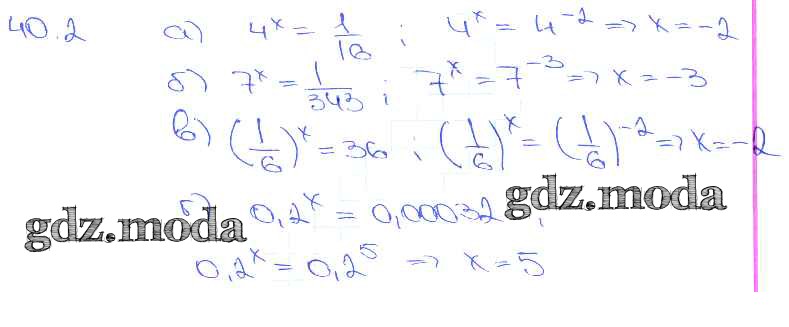 40.2 а) 4^x = 1/16 ; 4^x = 4^-2 => x = -2
б) 7^x = 1/343 ; 7^x = 7^-3 => x = -3
в) (1/6)^x = 36 ; (1/6)^x = (1/6)^-2 => x = -2
г) 0,2^x = 0,00032 ;
gdz.moda
gdz.moda
0,2^x = 0,2^5 => x = 5